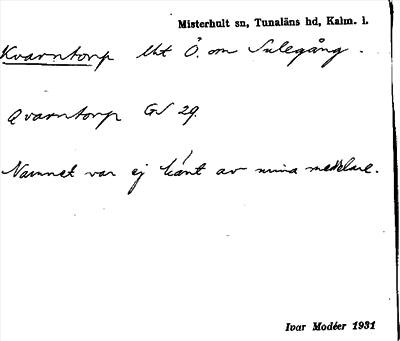 Misterhult sn, Tunaläns hd, Kalm. l.
Kvarntorp lht Ö. om Sulegång.
Qvarntorp GS 29.
Namnet var ej känt av mina meddelare.
Ivar Modéer 1931